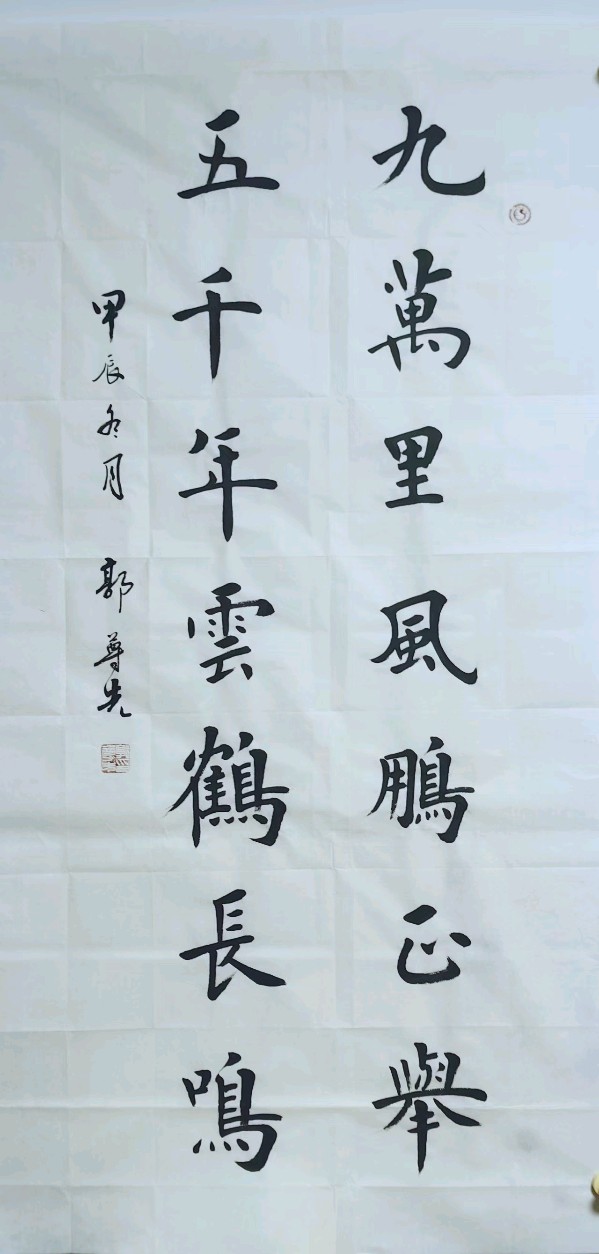 九萬里風鵬正舉
五千年雲鶴長鳴
甲辰冬月 郭尊先